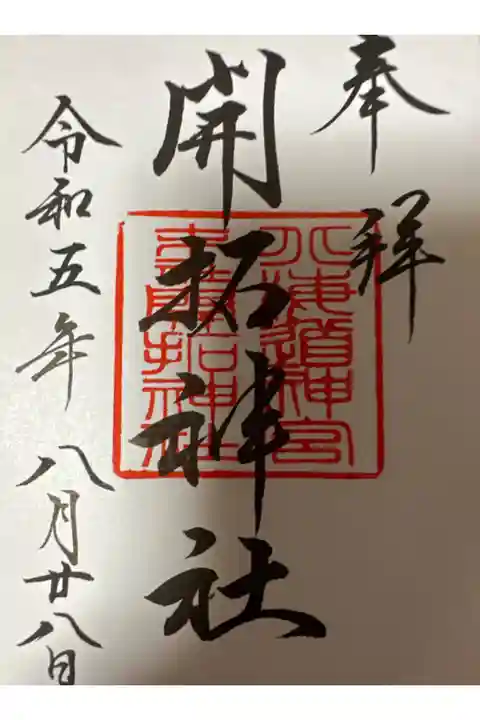 奉拝
開拓神社
北海道神宮
末社開拓神社
令和五年八月廿八日